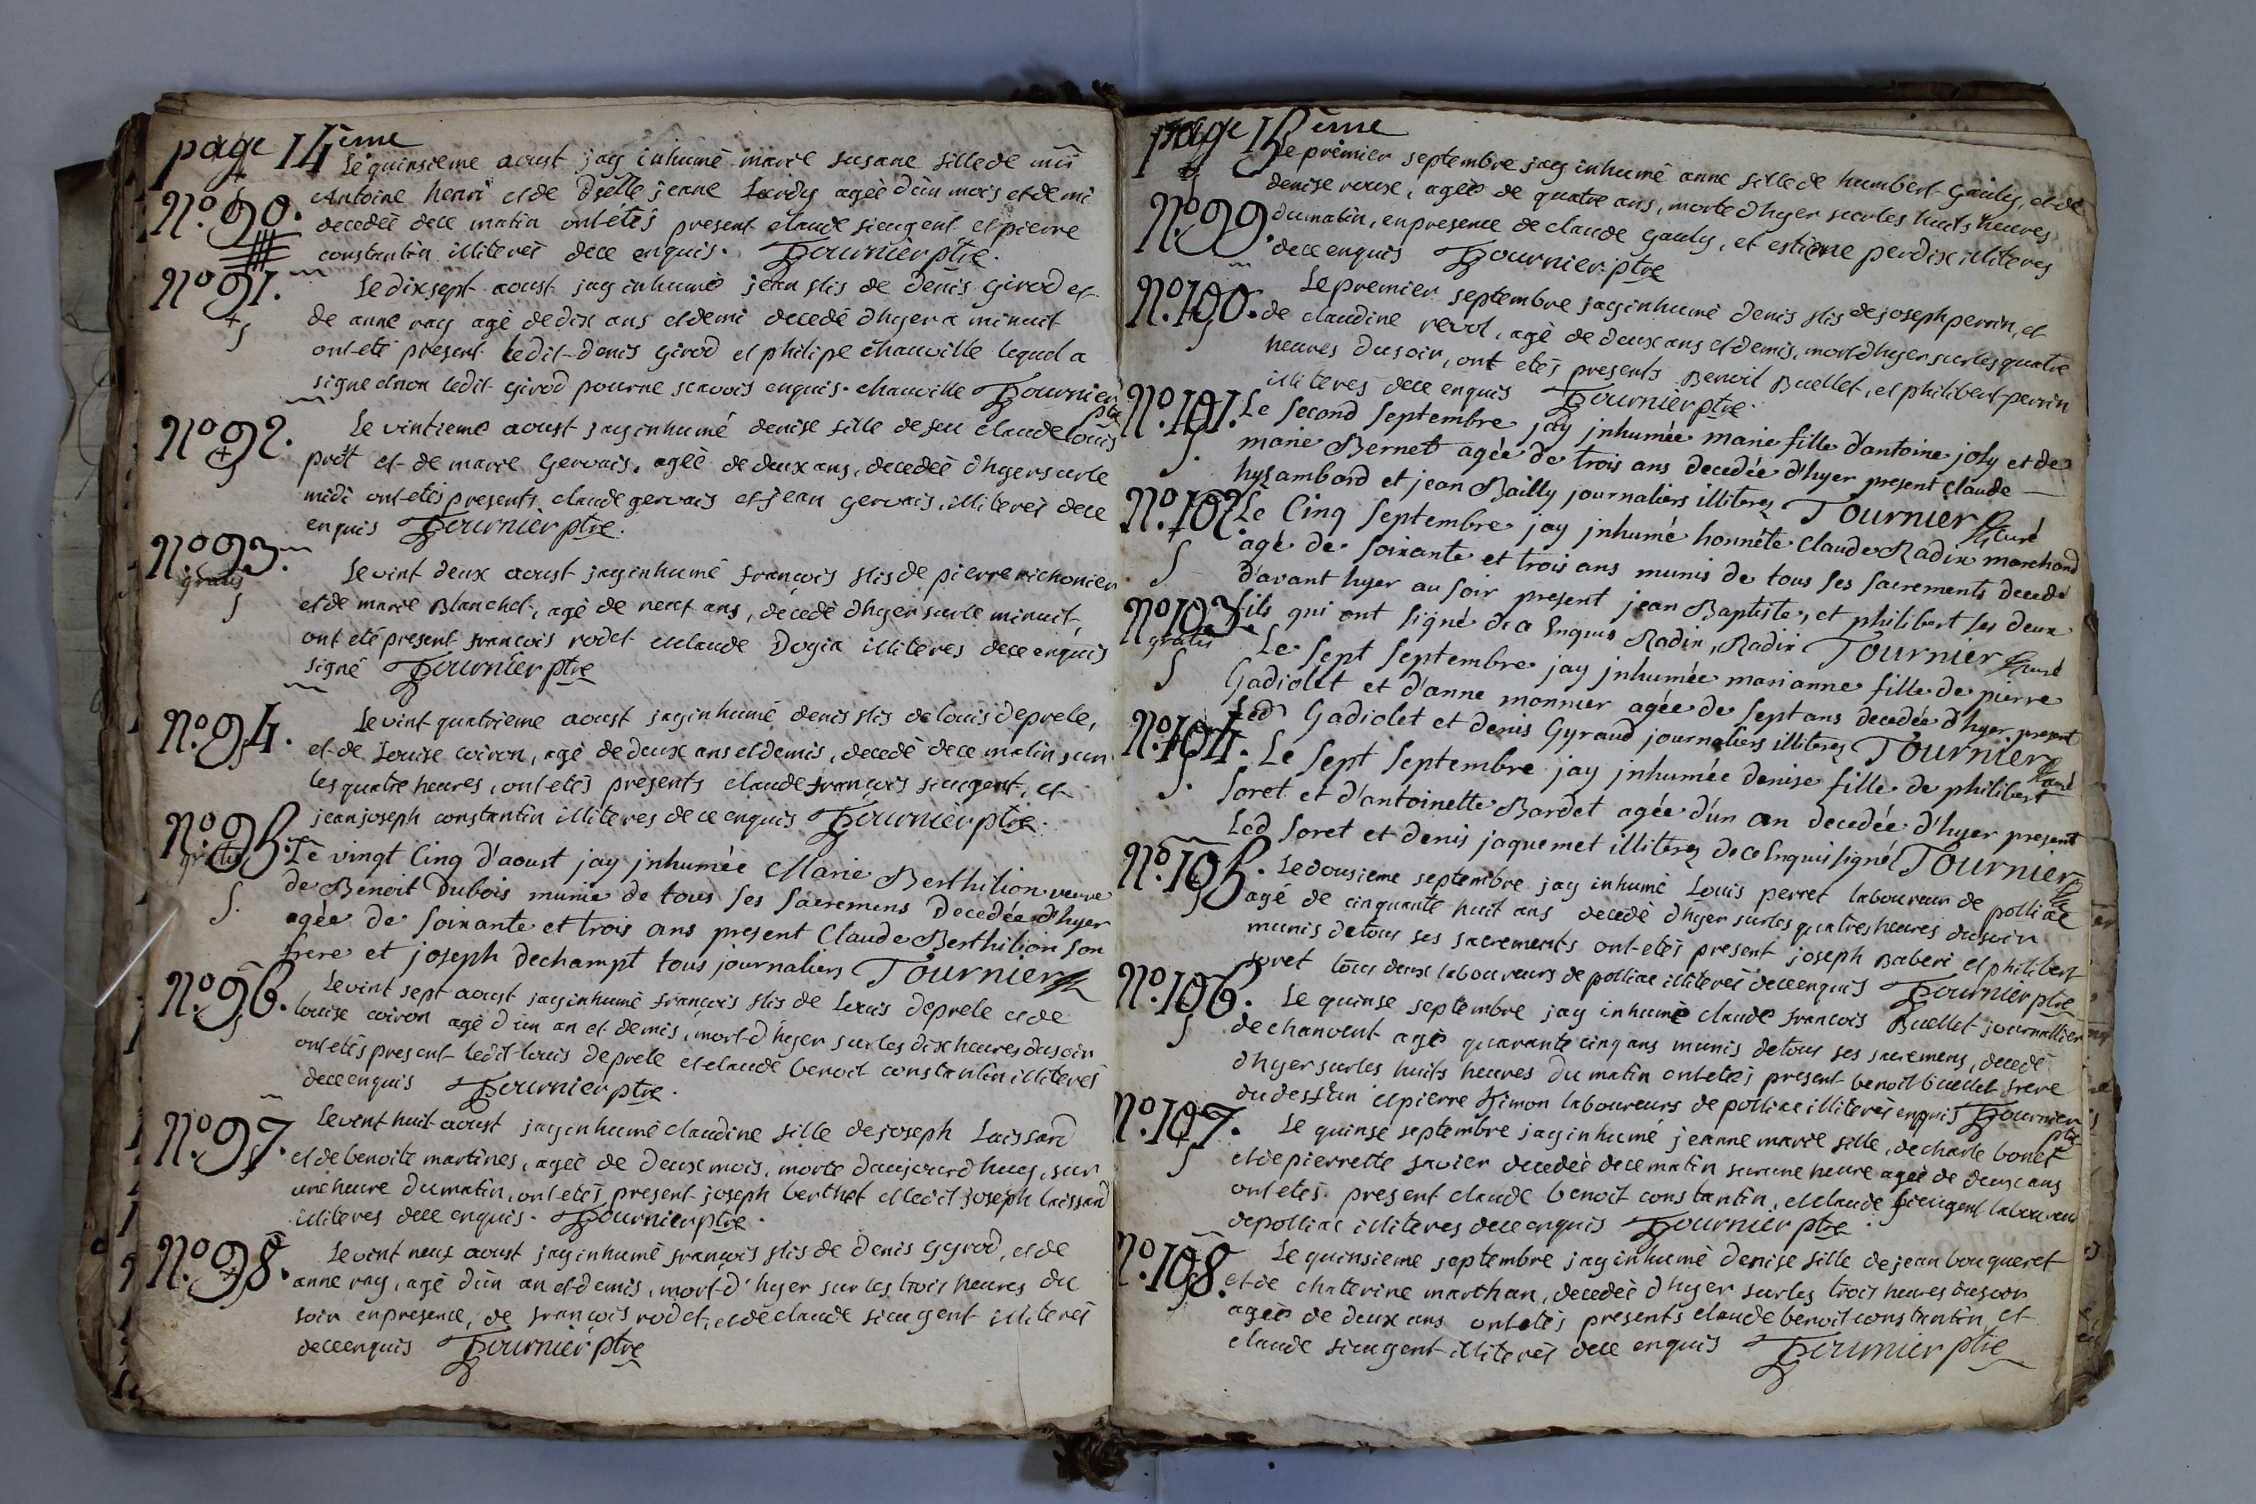 page 14ème
Le quinsieme aoust jay inhumé marie susane fille de
N.º 90.
Antoine henri et de delle jeanne agèè dùn mois et demi
decedèè dece matin ont étés present claude sieugent et pierre
constantin illiterés dece enquis. Tournier ptre.
N.º 91.
Le dixsept aoust jay inhumé jean fils de denis girod et
de anne ray agè de dix ans et demi decedè dhyer a minuit
ont été present ledit denis girod et philipe chauville lequel a
signe et non ledit girod pour ne scavois enquis. chauville Tournier
ptre
N.º 92.
Le vintieme aoust jay inhumé denise fille de feu claude louis
prost et de marie Gervais, agèè de deux ans, decedèè dhyer sur le
midi ont etés presents claude gervais et jean gervais, illiterés dece
enquis Tournier ptre.
N.º 93.
gratis
Le vint deux aoust jay inhumé françois fils de pierre richonier
et de marie Blanchet, agè de neuf ans, décedé dhyer sur le minuit,
ont eté present françois rodet et claude Dogia illiteres dece enquis
signé Tournier ptre
N.º 94.
Le vint quatrieme aoust jay inhumé denis fils de louis deprele,
et de Louise coiron, agè de deux ans et demis, decedè dece matin sur
les quatre heures, ont etés presents claude françois sieugent, et
jean joseph constantin illiteres dece enquis Tournier ptre.
N.º 95.
gratis
Le vingt Cinq d'aoust jay jnhumée Marie Berthilion veuve
de Benoit Dubois munie de tous ses sacremens Decedée d'hyer
agée de soixante et trois ans present Claude Berthilion son
frere et joseph Dechampt tous journaliers Tournier
N.º 96.
Le vint sept aoust jay inhumé françois fils de Louis deprele et de
louise coiron agè dùn an et demis, mort dhyer sur les dix heures du soir
ont etés present ledit louis deprele et claude benoit constantin illiterés
dece enquis Tournier ptre.
N.º 97.
Le vint huit aoust jay inhumé claudine fille de joseph Laissard
et de benoite martines, agèè de deux mois, morte daujourdhuy, sur
une heure du matin, ont etés present joseph berthet et ledit joseph laissard
illiteres dece enquis. Tournier ptre.
N.º 98.
Le vint neuf aoust jay inhumé françois fils de denis Gyrod, et de
anne ray, agè dùn an et demis, mort d'hyer sur les trois heures du
soir en presence, de françois rodet, et de claude sieugent illiterés
dece enquis Tournier ptre
page 15ème
Le premier septembre jay inhumé anne fille de humbert Gauly, et de
denise roux, agèè de quatre ans, morte dhyer sur les huits heures
N.º 99.
du matin, en presence de claude gauly, et estiene perdix illiteres
dece enquis Tournier. ptre
N.º 100.
Le premier septembre jay inhumé denis fils de joseph perrin, et
de claudine revol, agè de deux ans et demis, mort dhyer sur les quatre
heures du soir, ont etés presents Benoit Buellet, et philibert perrin
illiteres dece enquis Tournier ptre.
N.º 101.
Le second septembre jay jnhumée marie fille d'antoine joly et de
marie Bernet agée de trois ans decedée d'hyer present Claude
hysambard et jean Bailly journaliers illiterez Tournier Curé
N.º 102.
Le Cinq septembre jay jnhumé honnête Claude Radix marchand
agé de soixante et trois ans munis de tous ses sacrements decedé
d'avant hyer au soir present jean Baptiste, et philibert ses deux
fils qui ont signé de ce Enquis Radix, Radix Tournier Curé
N.º 103.
gratis
Le sept septembre jay jnhumée marianne fille de pierre
Gadiolet et d'anne monnier agée de sept ans decedée d'hyer present
Led Gadiolet et denis Gyraud journaliers illiterez Tournier
Curé
N.º 104.
Le sept septembre jay jnhumée denise fille de philibert
soret et d'antoinette Bardet agée d'un an decedée d'hyer present
Led soret et denis jaquemet illiterez de ce Enquis signé Tournier
N.º 105.
Le dousieme septembre jay inhumé Louis perret laboureur de polliac
agé de cinquante huit ans decedè dhyer sur les quatres heures du soir
munis de tous ses sacrements ont etés present joseph Baberi et philibert
soret tous deux laboureurs de polliac illiterés dece enquis Tournier ptre
N.º 106.
Le quinse septembre jay inhumé claude françois Buellet journallier
de chanvent agè quarante cinq ans munis de tous ses sacremens, decedé
dhyer sur les huits heures du matin ont etés present benoit buellet frere
du desfun et pierre Simon laboureurs de polliac illiterés enquis Tournier
ptre
N.º 107.
Le quinse septembre jay inhumé jeanne marie fille, de charle bonet
et de pierrette savier decedèè dece matin sur une heure agèè de deux ans
ont etés present claude benoit constantin, et claude sieugent laboureurs
de polliac illiteres dece enquis Tournier ptre.
N.º 108.
Le quinsieme septembre jay inhumé denise fille de jean bouqueret
et de chaterine marthan, decedèè dhyer sur les trois heures du soir
agèè de deux ans ont etés presents claude benoit constantin, et
claude sieugent illiterés dece enquis Tournier ptre